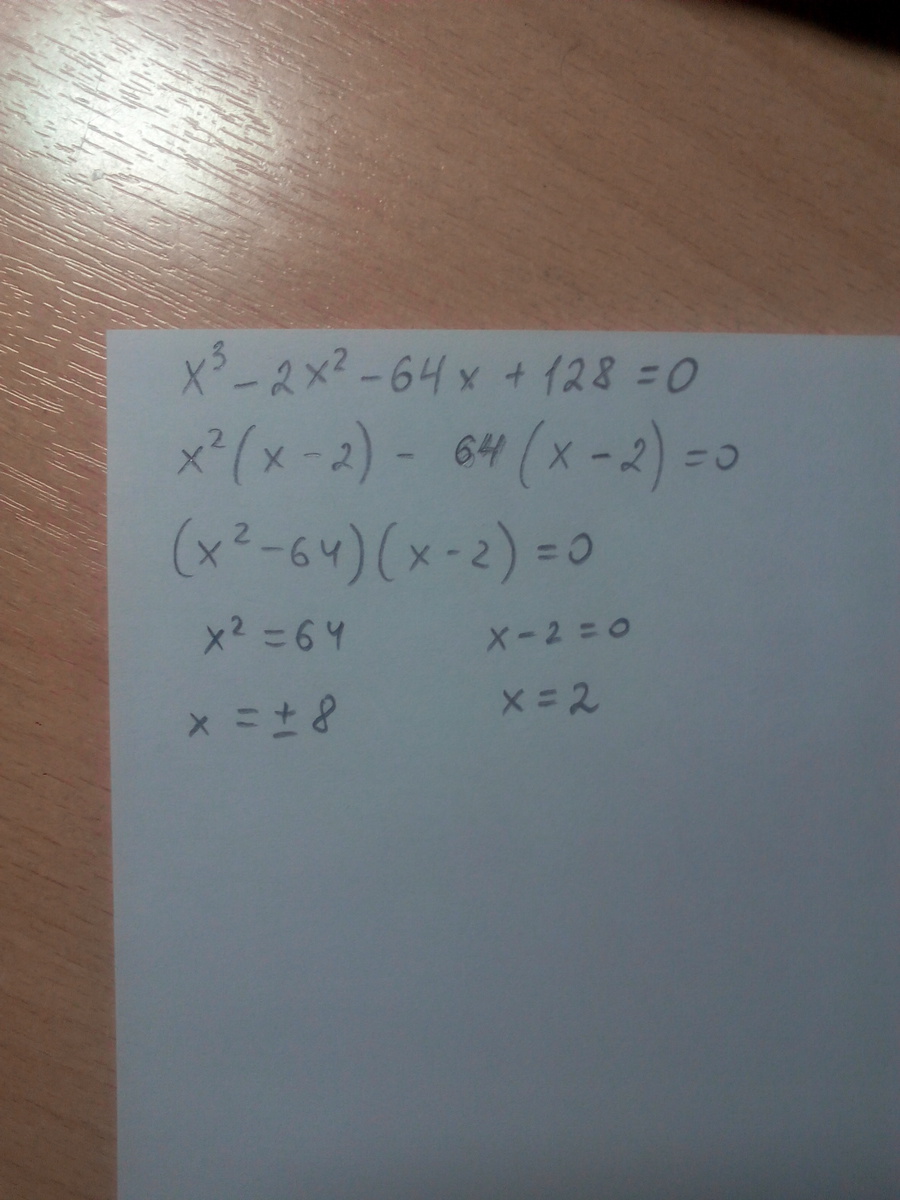 x³ - 2x² - 64x + 128 = 0
x²(x - 2) - 64(x - 2) = 0
(x² - 64)(x - 2) = 0
x² = 64 x - 2 = 0
x = ± 8 x = 2